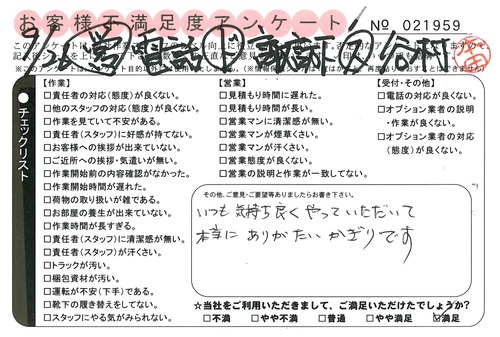 お客様不満足度アンケート
№ 021959
チェックリスト
【作業】
□責任者の対応(態度)が良くない。
□他のスタッフの対応(態度)が良くない。
□作業を見ていて不安がある。
□責任者(スタッフ)に好感が持てない。
□お客様への挨拶が出来ていない。
□ご近所への挨拶・気遣いが無い。
□作業開始前の内容確認がなかった。
□作業開始時間が遅れた。
□荷物の取り扱いが雑である。
□お部屋の養生が出来ていない。
□作業時間が長すぎる。
□責任者(スタッフ)に清潔感が無い。
□責任者(スタッフ)が汗くさい。
□トラックが汚い。
□梱包資材が汚い。
□運転が不安(下手)である。
□靴下の履き替えをしてない。
□スタッフにやる気がみられない。
【営業】
□見積もり時間に遅れた。
□見積もり時間が長い。
□営業マンに清潔感が無い。
□営業マンが煙草くさい。
□営業マンが汗くさい。
□営業態度が良くない。
□営業の説明と作業が一致してない。
【受付・その他】
□電話の対応が良くない。
□オプション業者の説明
・作業が良くない。
□オプション業者の対応
(態度)が良くない。
その他、ご意見・ご要望等ありましたらお書き下さい。
いつも気持ち良くやっていただいて
本当にありがたいかぎりです
☆当社をご利用いただきまして、ご満足いただけたでしょうか?
□不満 □やや不満 □普通 □やや満足 ☑満足